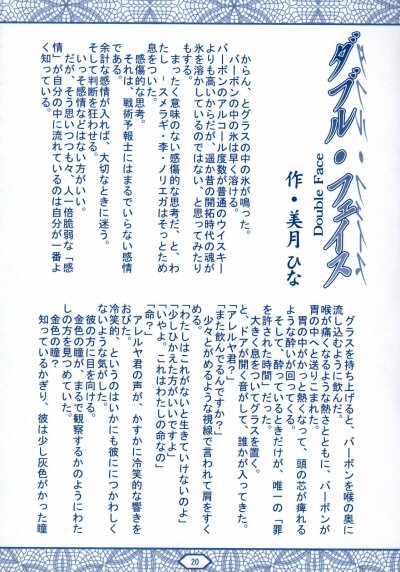 ダブル・フェイス
Double Face
作・美月 ひな
からん、とグラスの中の氷が鳴った。
バーボンの中の氷は早く溶ける。
バーボンのアルコール度数が普通のウイスキー
よりも高いからだが、遥か昔の開拓時代の魂が
氷を溶かしているのではない、と思ってみたり
もする。
まったく意味のない感傷的な思考だ、と、わ
たし ―スメラギ・李・ノリエガはそっとため
息をついた。
感傷的な思考。
それは、戦術予報士にはまるでいらない感情
である。
余計な感情が入れば、大切なときに迷う。
そして判断を狂わせる。
いっそ感情などはない方がいい。
だが、そう思いつつも、人一倍脆弱な「感
情」が自分の中に流れているのは自分が一番よ
く知っている。
グラスを持ち上げると、バーボンを喉の奥に
流し込むように飲んだ。
喉が痛くなるような熱さとともに、バーボンが
胃の中へと送りこまれた。
胃の中がかっと熱くなって、頭の芯が痺れる
ような酔いが回ってくる。
そして、酔っているときだけが、唯一の「罪
を許された時間」だった。
大きく息をついてグラスを置く。
と、ドアが開く音がして、誰かが入ってきた。
「アレルヤ君?」
「また飲んでるんですか?」
少々とがめるような視線で言われて肩をすく
める。
「わたしはこれがないと生きていけないのよ」
「少しひかえた方がいいですよ」
「いやよ。これはわたしの命なの」
「命?」
アレルヤ君の声が、かすかに冷笑的な響きを
おびた。
冷笑的、というのはいかにも彼ににつかわしく
ないような気がした。
彼の方に目を向ける。
金色の瞳が、まるで観察するかのようにわた
しの方を見つめていた。
金色の瞳?
知っているかぎり、彼は少し灰色がかった瞳
20